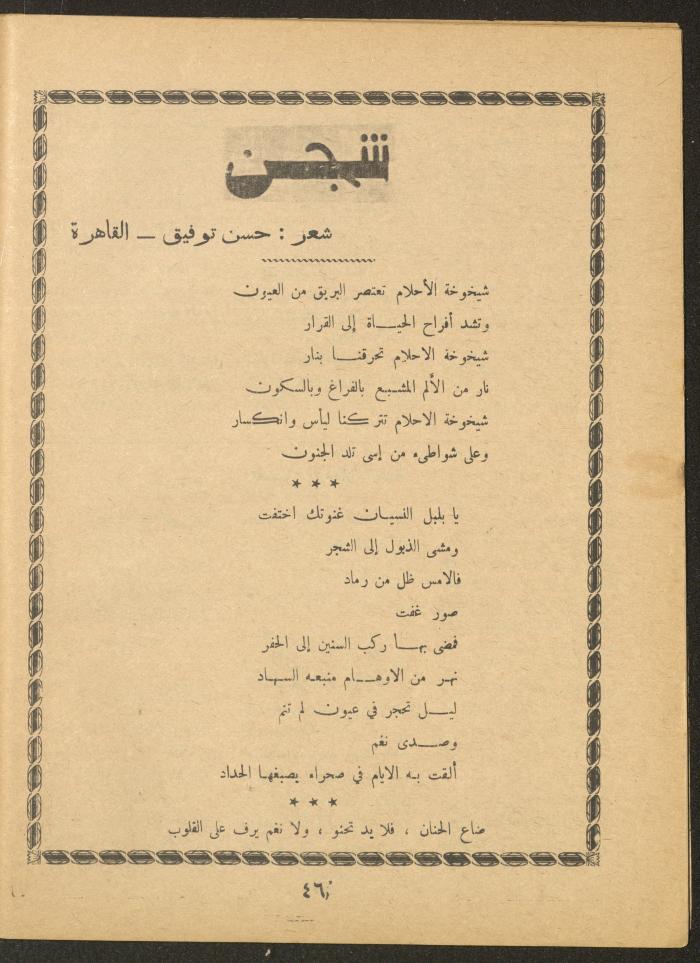 شجن
شعر : حسن توفيق ــ القاهرة
شيخوخة الأحلام تعتصر البريق من العيون
وتشد أفراح الحيـــاة إلى القرار
شيخوخة الاحلام تحرقنـــا بنار
نار من الألم المشـبع بالفراغ وبالسكون
شيخوخة الاحلام تتركنا ليأس وانكسار
وعلى شواطىء من إسى تلد الجنون
★ ★ ★
يا بلبل النسيـان غنوتك اختفت
ومشى الذبول إلى الشجر
فالامس ظل من رماد
صور غفت
فمضى بهـــا ركب السنين إلى الحفر
نهـر من الاوهـــام منبعه السهـاد
ليـــل تحجر في عيون لم تنم
وصـــدى نغم
ألقت بـه الايام في صحراء يصبغهـا الحداد
★ ★ ★
ضاع الحنان ، فلا يد تحنو ، ولا نغم يرف على القلوب
٤٦